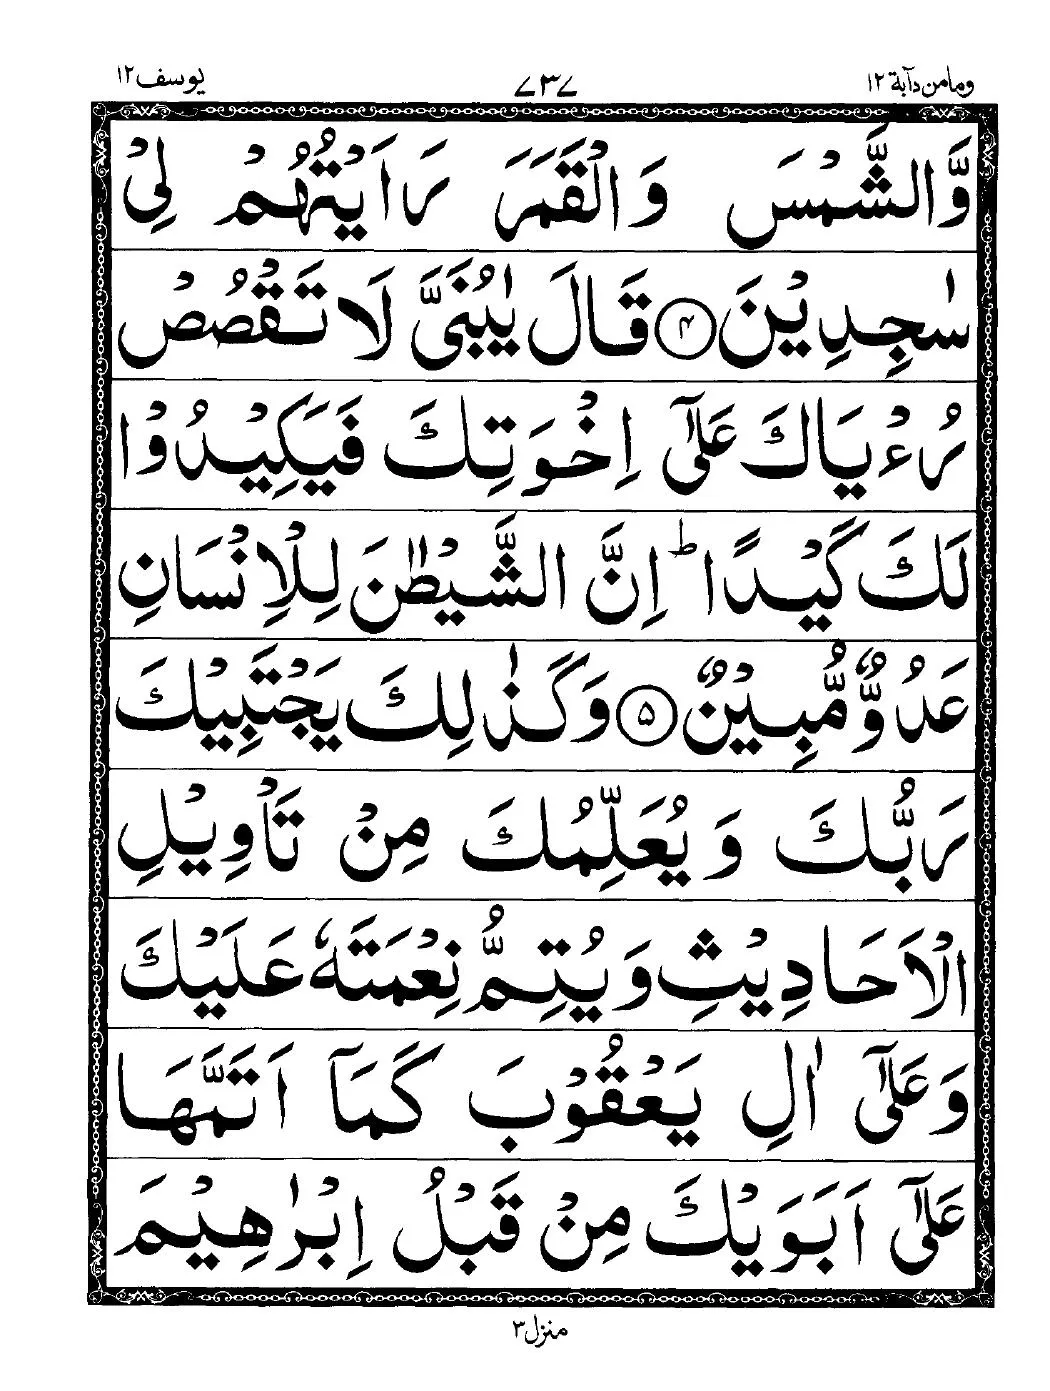 وما من دآبة ١٢ ٧٣٧ يوسف ١٢
وَّالشَّمْسَ وَالْقَمَرَ رَاَيْتُهُمْ لِىْ
سٰجِدِيْنَ ۴ قَالَ يٰبُنَىَّ لَا تَقْصُصْ
رُءْيَاكَ عَلٰٓى اِخْوَتِكَ فَيَكِيْدُوْا
لَكَ كَيْدًا ؕ اِنَّ الشَّيْطٰنَ لِلْاِنْسَانِ
عَدُوٌّ مُّبِيْنٌ ۵ وَكَذٰلِكَ يَجْتَبِيْكَ
رَبُّكَ وَيُعَلِّمُكَ مِنْ تَاْوِيْلِ
الْاَحَادِيْثِ وَيُتِمُّ نِعْمَتَهٗ عَلَيْكَ
وَعَلٰٓى اٰلِ يَعْقُوْبَ كَمَآ اَتَمَّهَا
عَلٰٓى اَبَوَيْكَ مِنْ قَبْلُ اِبْرٰهِيْمَ
منزل ٣